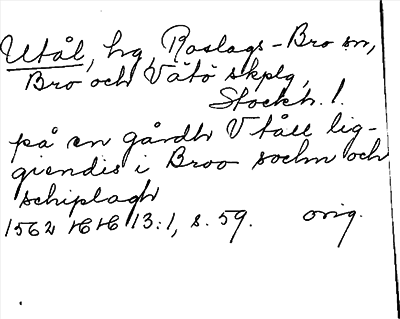 Utål, hg, Roslags-Bro sn,
Bro och Vätö skplg,
Stockh. l.
på en gårdh Utåll lig-
giendis i Broo sochn och
schiplagh
1562 HH 13:1, s. 59. orig.